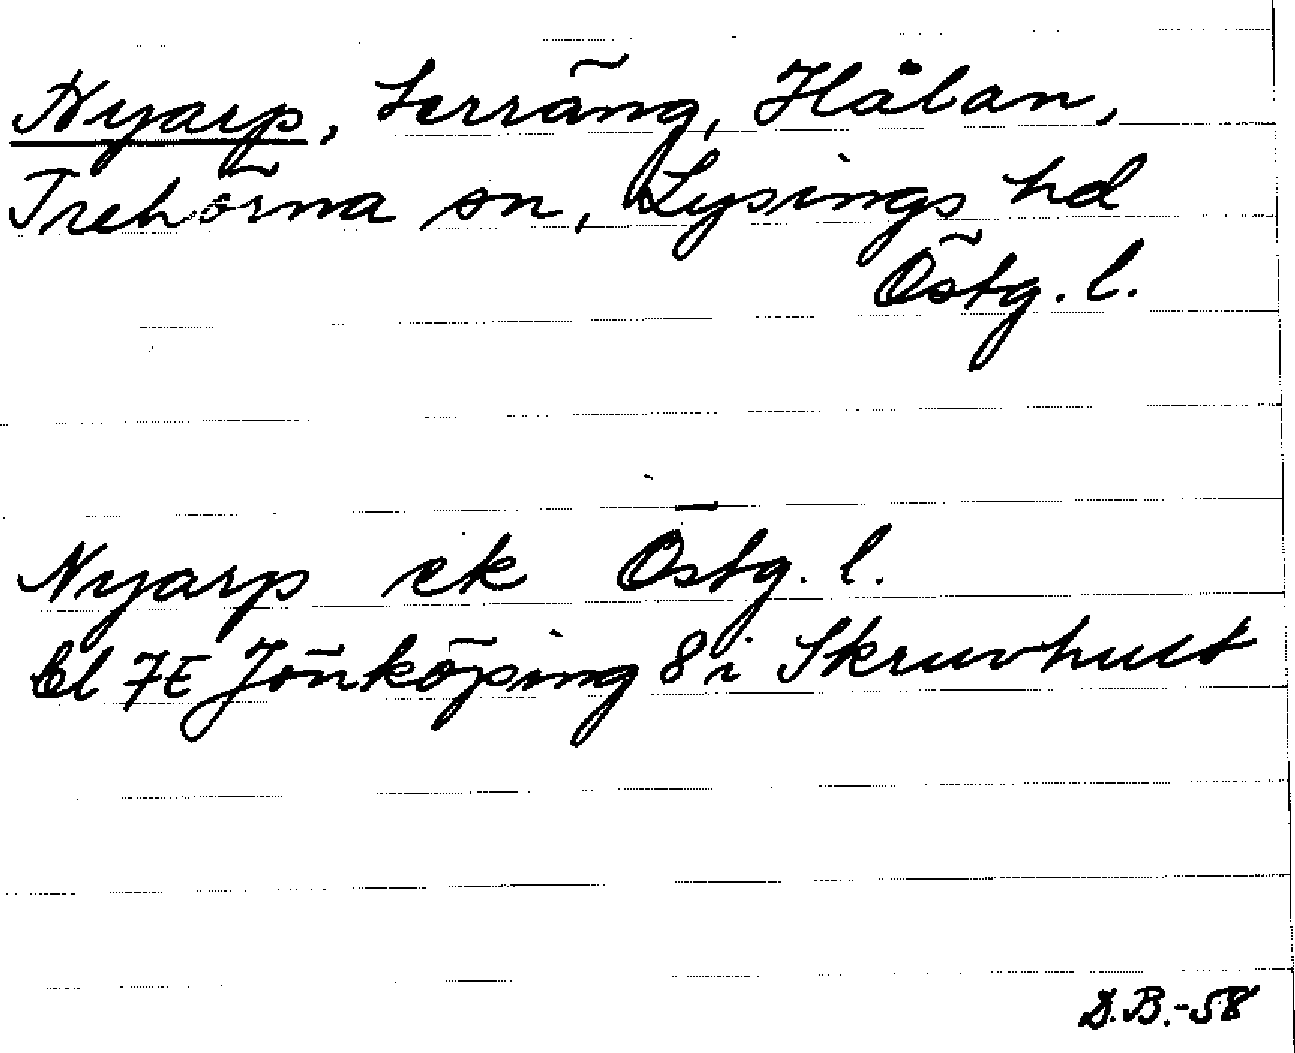 Nyarp, terräng, Hålan,
Trehörna sn, Lysings hd
Östg. l.
Nyarp ek Östg. l.
bl 7E Jönköping 8i Skruvhult
D.B.-58